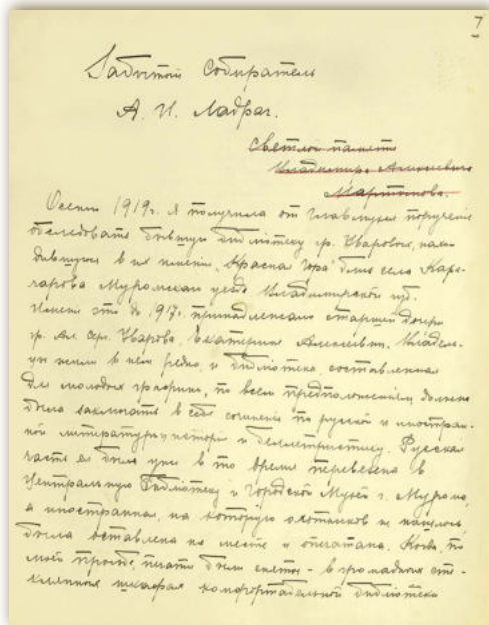 7
Забытый собиратель
А. И. Ладраг.
Светлой памяти
Владимира Алексеевича
Мартынова.
Осенью 1919г. я получила от Главмузея поручение
обследовать бывшую библиотеку гр. Уваровых, нахо-
дившуюся в их имении „Красная Гора" близ села Кара-
чарова Муромского уезда Владимирской губ.
Имение это до 1917г. принадлежало старшей дочери
гр. Ал. Серг. Уварова, Екатерине Алексеевне. Владель-
цы жили в нем редко, и библиотека, составленная
для молодых графинь, по всем предположениям, должна
была заключать в себе сочинения по русской и иностран-
ной литературе, истории и беллетристику. Русская
часть ее была уже в то время перевезена в
Центральную Библиотеку и Городской Музей г. Мурома,
а иностранная, на которую охотников не нашлось,
была оставлена на месте и опечатана. Когда, по
моей просьбе, печати были сняты - в громадных сте-
клянных шкафах комфортабельной библиотеки